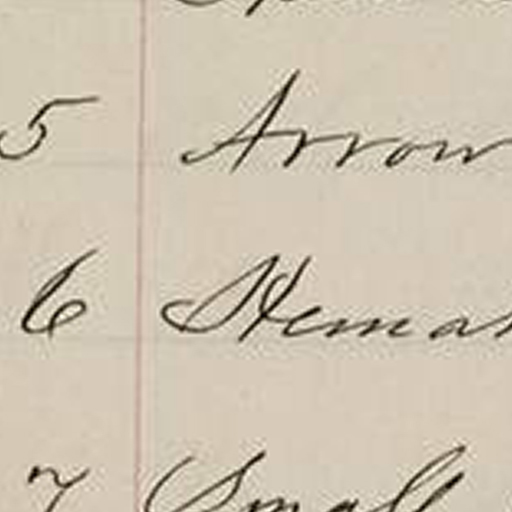 5 Arrow
6 Hema
7 Small